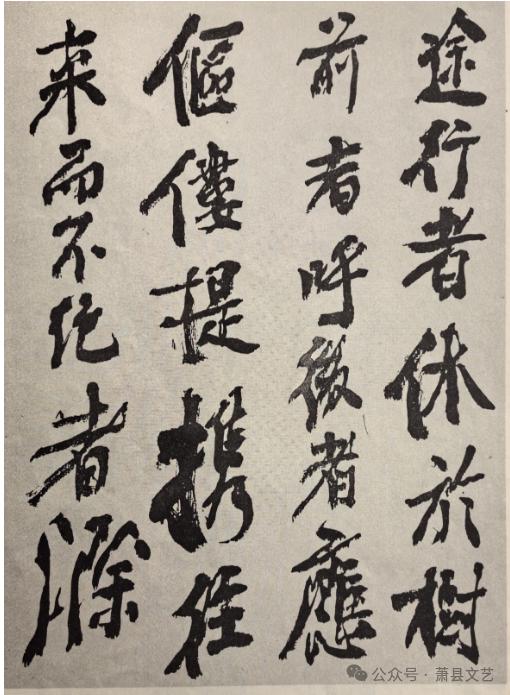 途行者休於樹
前者呼後者應
傴僂提携往
来而不绝者滁
公众号·萧县文艺